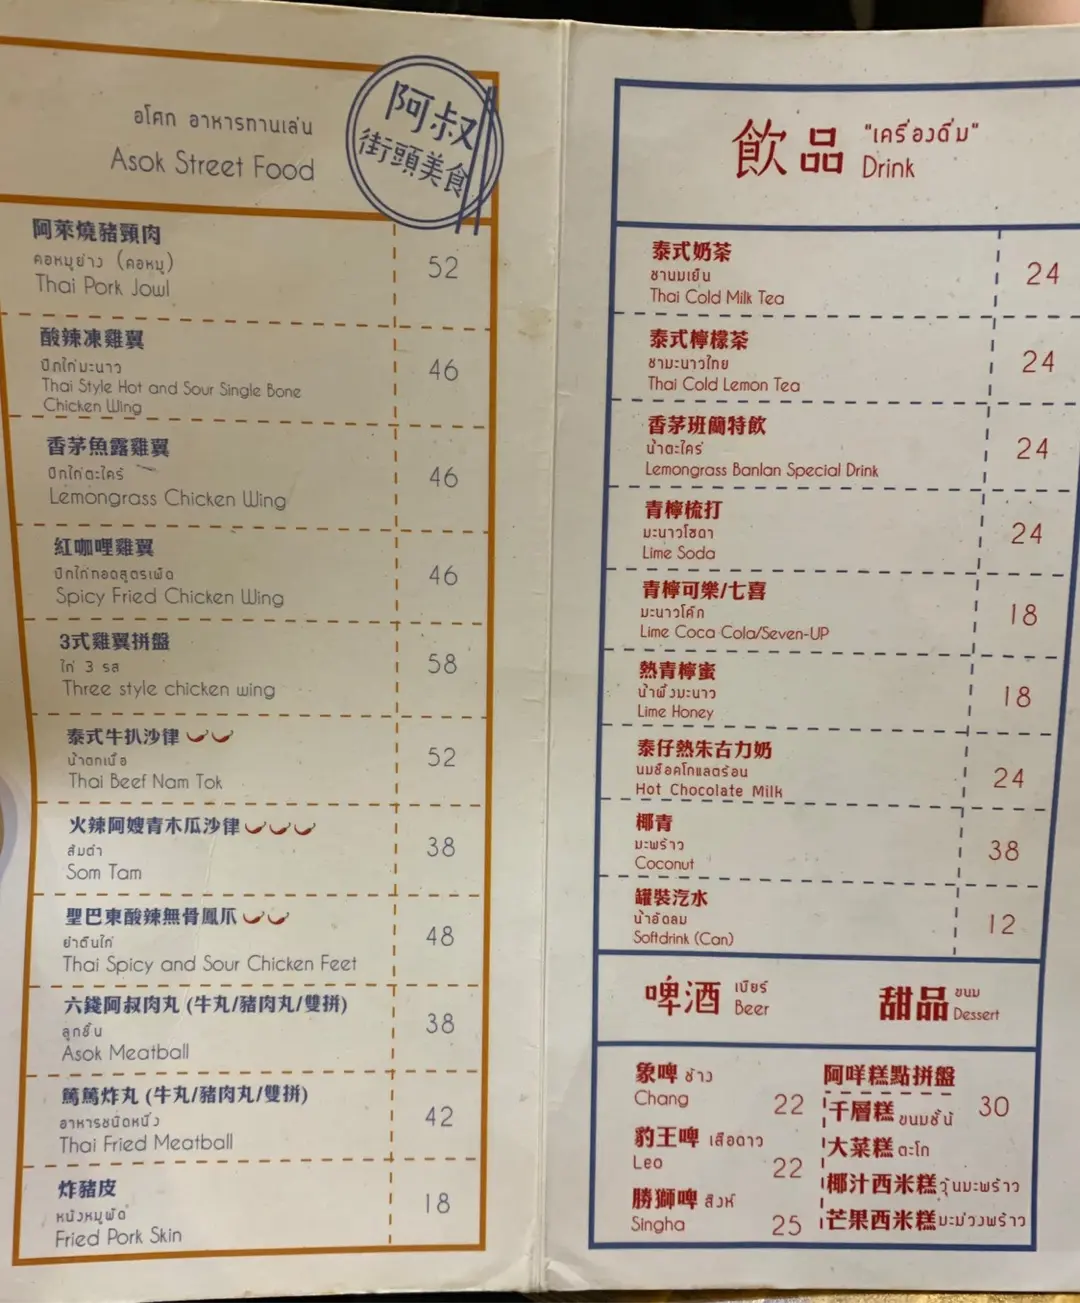 อโศก อาหารทานเล่น
Asok Street Food
阿叔
街頭美食
阿萊燒豬頸肉
คอหมูย่าง (คอหมู)
Thai Pork Jowl
52
酸辣凍雞翼
ปีกไก่มะนาว
Thai Style Hot and Sour Single Bone
Chicken Wing
46
香茅魚露雞翼
ปีกไก่ตะไคร้
Lemongrass Chicken Wing
46
紅咖哩雞翼
ปีกไก่ทอดสูตรเผ็ด
Spicy Fried Chicken Wing
46
3式雞翼拼盤
ไก่ 3 รส
Three style chicken wing
58
泰式牛扒沙律
น้ำตกเนื้อ
Thai Beef Nam Tok
52
火辣阿嫂青木瓜沙律
ส้มตำ
Som Tam
38
聖巴東酸辣無骨鳳爪
ยำตีนไก่
Thai Spicy and Sour Chicken Feet
48
六錢阿叔肉丸 (牛丸/豬肉丸/雙拼)
ลูกชิ้น
Asok Meatball
38
篤篤炸丸 (牛丸/豬肉丸/雙拼)
อาหารชนิดหนึ่ง
Thai Fried Meatball
42
炸豬皮
หนังหมูผัด
Fried Pork Skin
18
飲品 "เครื่องดื่ม"
Drink
泰式奶茶
ชานมเย็น
Thai Cold Milk Tea
24
泰式檸檬茶
ชามะนาวไทย
Thai Cold Lemon Tea
24
香茅班蘭特飲
น้ำตะไคร้
Lemongrass Banlan Special Drink
24
青檸梳打
มะนาวโซดา
Lime Soda
24
青檸可樂/七喜
มะนาวโค้ก
Lime Coca Cola/Seven-UP
18
熱青檸蜜
น้ำผึ้งมะนาว
Lime Honey
18
泰仔熱朱古力奶
นมช็อคโกแลตร้อน
Hot Chocolate Milk
24
椰青
มะพร้าว
Coconut
38
罐裝汽水
น้ำอัดลม
Softdrink (Can)
12
啤酒 เบียร์
Beer
甜品 ขนม
Dessert
象啤 ช้าง
Chang
22
豹王啤 เสือดาว
Leo
22
勝獅啤 สิงห์
Singha
25
阿咩糕點拼盤
30
千層糕 ขนมชั้น
大菜糕 ตะโก
椰汁西米糕 วุ้นมะพร้าว
芒果西米糕 มะม่วงพร้าว